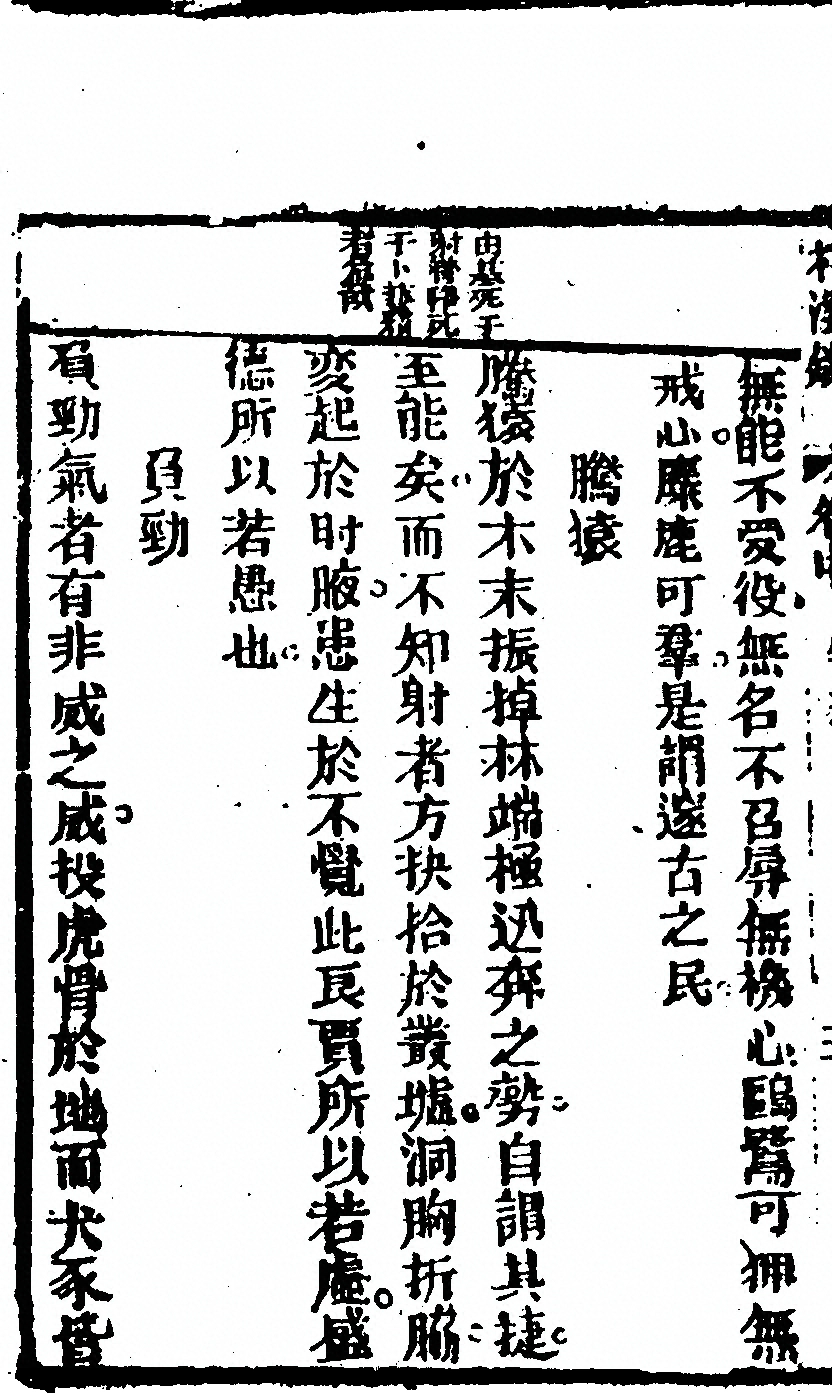 無能不愛役無名不召辱無機心鷗鷺可狎無
戒心麋鹿可羣是謂邃古之民
騰猿
騰猿於木末振掉林端極迅奔之勢自謂其捷
至能矣而不知射者方抉拾於叢墟洞胸折脇
変起於时腋患生於不覺此良賈所以若虛盛
德所以若愚也
負勁
負勁氣者有非威之威投虎骨於地而犬豕皆